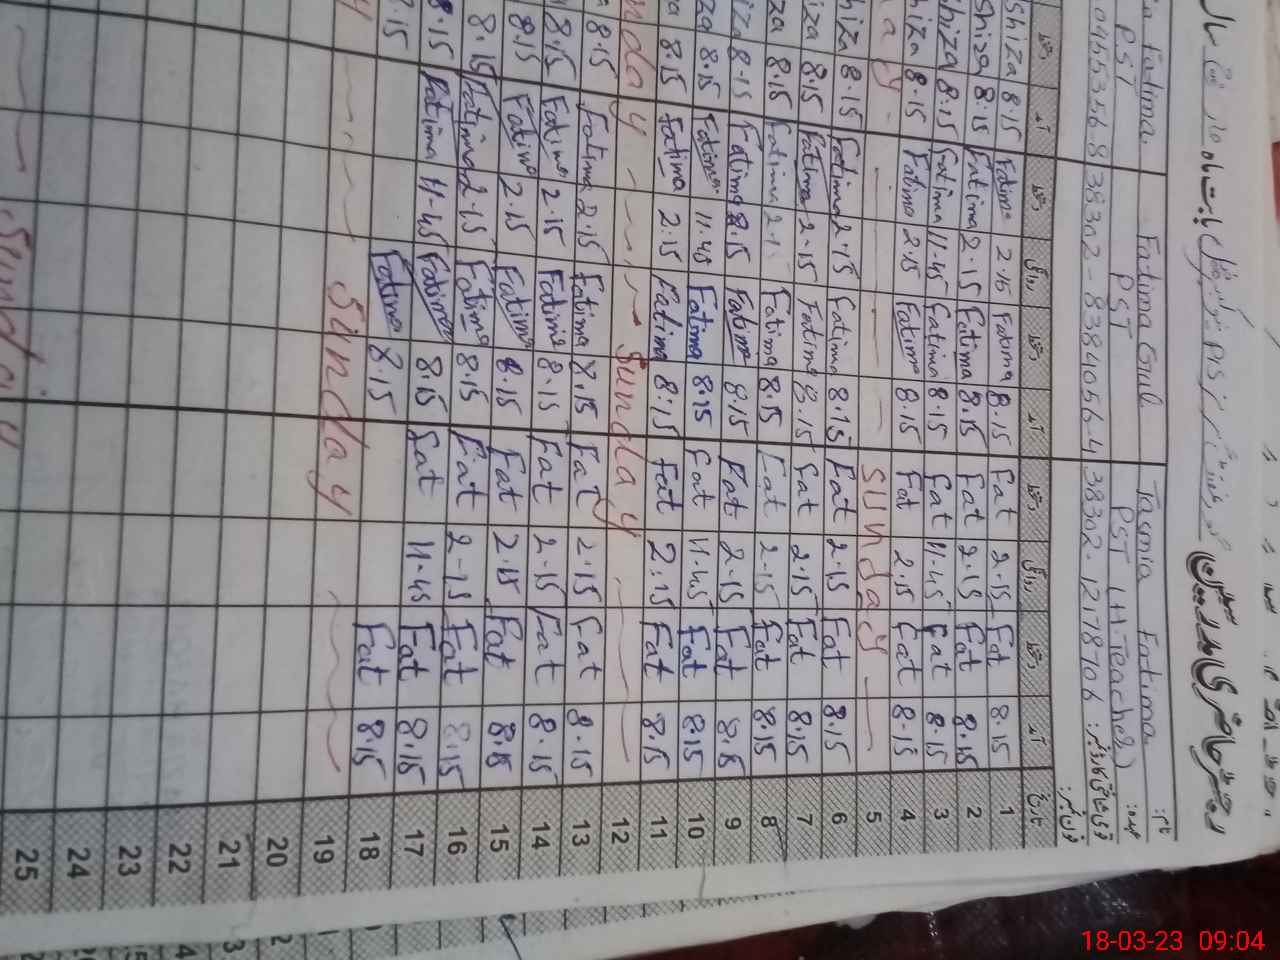 رجسٹر حاضری مدرسین
نام: Tasmia Fatima Fatima Gul Fatima
عہدہ: PST (H.Teacher) PST PST
38302-1217870 6 38302-8384056-4 0455356-8
تاریخ آمد دستخط روانگی دستخط آمد دستخط روانگی دستخط آمد دستخط
Shiza 8.15 Fatima 2.15 Fatima 8.15 Fat 2.15 Fat 8.15 1
Shiza 8.15 Fatima 2.15 Fatima 8.15 Fat 2.15 Fat 8.15 2
hiza 8.15 Fatima 11-45 Fatima 8.15 Fat 11-45 Fat 8.15 3
hiza 8.15 Fatima 2.15 Fatima 8.15 Fat 2.15 Fat 8.15 4
ay Sunday 5
hiza 8.15 Fatima 2.15 Fatima 8.15 Fat 2.15 Fat 8.15 6
iza 8.15 Fatima 2.15 Fatima 8.15 Fat 2.15 Fat 8.15 7
za 8.15 Fatima Fatima 8.15 Fat 2-15 Fat 8.15 8
iza 8.15 Fatima 8.15 Fatima 8.15 Fat 2.15 Fat 8.15 9
za 8.15 Fatima 11.45 Fatima 8.15 Fat 11.45 Fat 8.15 10
a 8.15 Fatima 2.15 Fatima 8.15 Fat 2.15 Fat 8.15 11
nday Sunday 12
a 8.15 Fatima 2.15 Fatima 8.15 Fat 2.15 Fat 8.15 13
8.15 Fatima 2.15 Fatima 8.15 Fat 2-15 Fat 8.15 14
8.15 Fatima 2.15 Fatima 8.15 Fat 2.15 Fat 8.15 15
8.15 Fatima 2.15 Fatima 8.15 Fat 2-15 Fat 8.15 16
8.15 Fatima 11-45 Fatima 8.15 Fat 11-45 Fat 8.15 17
8.15 Fatima 8.15 Fat 8.15 18
y Sunday 19
20
21
22
23
24
Sunday 25
18-03-23 09:04